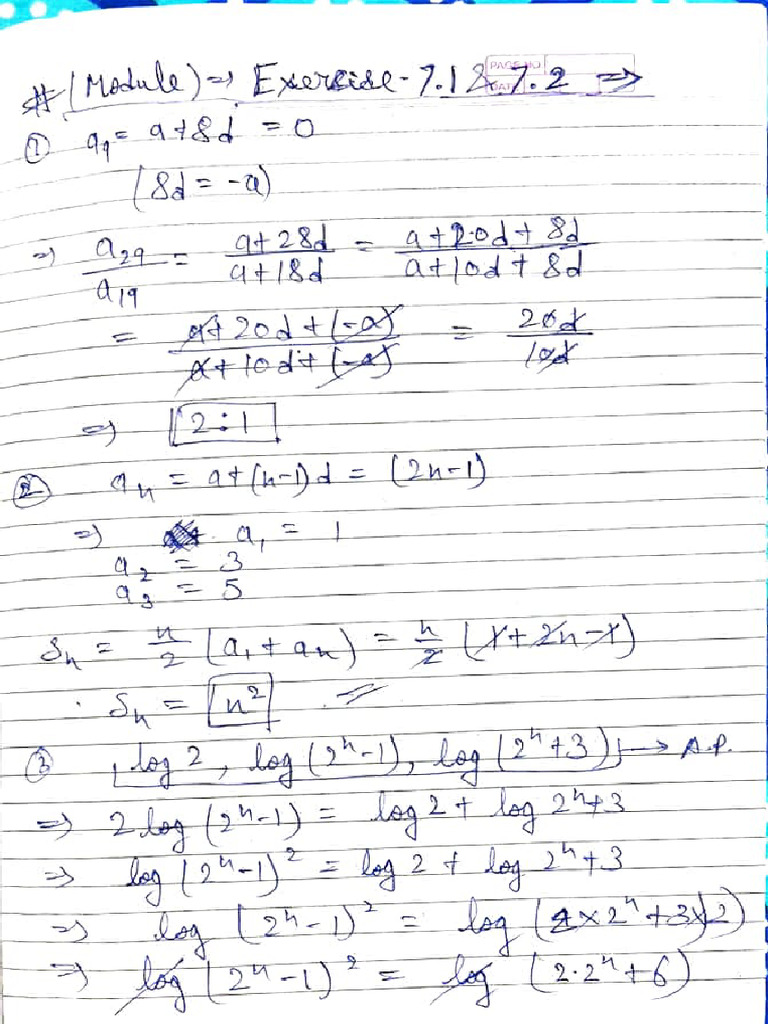 # (Module) => Exercise-7.1 & 7.2 =>
PAGE NO
① a₉ = a+8d = 0
(8d = -a)
=> a₂₉/a₁₉ = (a+28d)/(a+18d) = (a+20d+8d)/(a+10d+8d)
= (a+20d+(-a))/(a+10d+(-a)) = 20d/10d
=> 2:1
② aₙ = a+(n-1)d = (2n-1)
=> a₁ = 1
a₂ = 3
a₃ = 5
Sₙ = n/2 (a₁+aₙ) = n/2 (1+2n-1)
Sₙ = n²
③ log 2, log (2ⁿ-1), log (2ⁿ+3) → A.P.
=> 2 log (2ⁿ-1) = log 2 + log 2ⁿ+3
=> log (2ⁿ-1)² = log 2 + log 2ⁿ+3
=> log (2ⁿ-1)² = log (2×2ⁿ+3×2)
=> log (2ⁿ-1)² = log (2·2ⁿ+6)